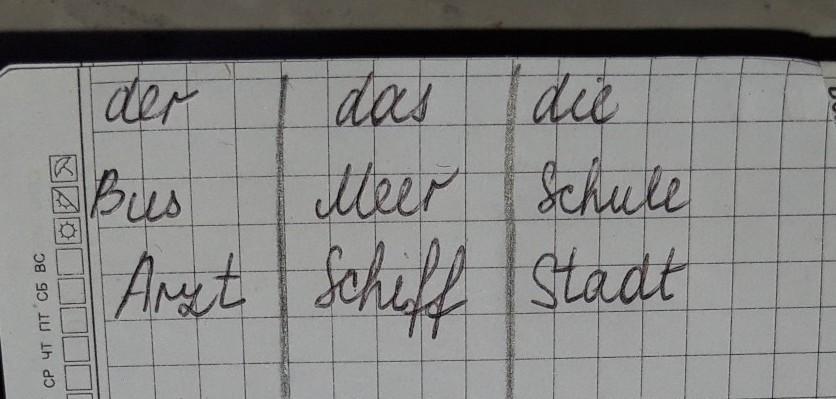 der das die
Bus Meer Schule
Arzt Schiff Stadt
СР ЧТ ПТ СБ ВС